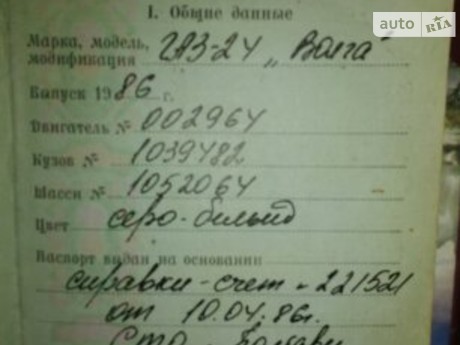 auto RIA
I. Общие данные
Марка, модель, модификация ГАЗ-24 „Волга"
Выпуск 1986 г.
Двигатель № 002964
Кузов № 1039482
Шасси № 1052064
Цвет серо-белый
Паспорт выдан на основании
справки-счет 221521
от 10.04.86г.